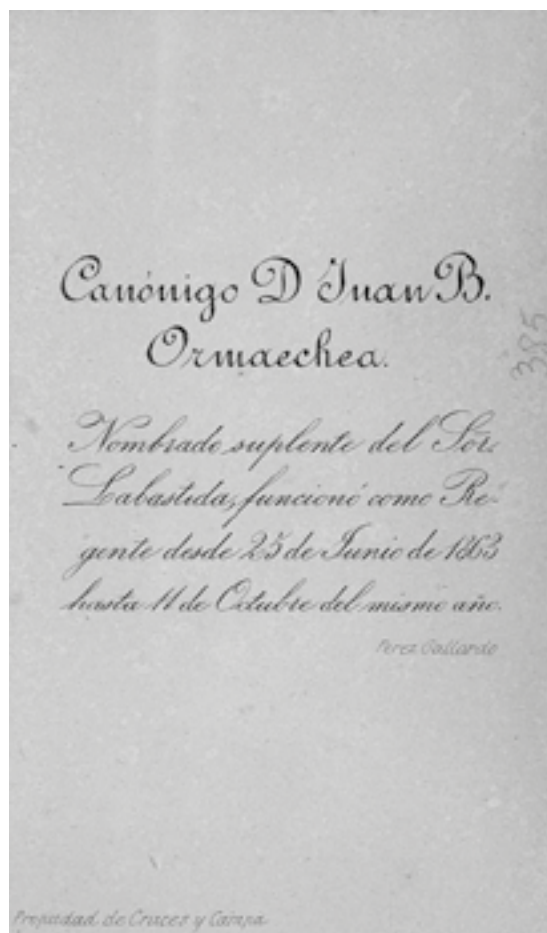 Canónigo D Juan B.
Ormaechea.
385
Nombrado suplente del Sör.
Labastida, funcionó como Re-
gente desde 25 de Junio de 1863
hasta 11 de Octubre del mismo año.
Perez Gallardo
Propiedad de Cruces y Campa